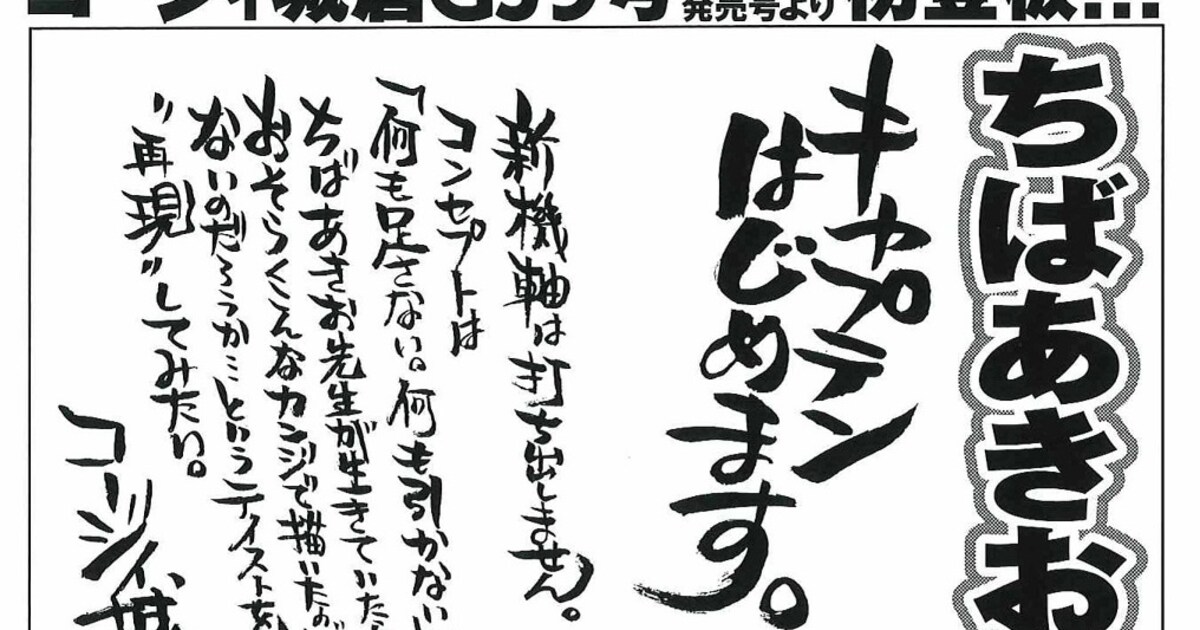 発売号より
ちばあきお
キャプテン
はじめます。
新機軸は打ち出しません。
コンセプトは
「何も足さない。何も引かない
ちばあきお先生が生きていた
おそらくこんなカンジで描いた
ないのだろうか…というテイストを
"再現"してみたい。
コージィ城